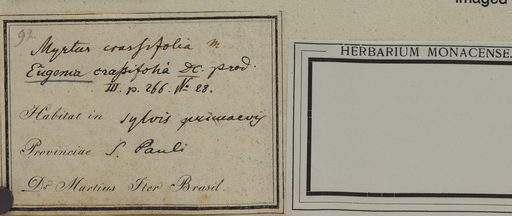 Imaged
92.
Myrtus crassifolia m
Eugenia crassifolia DC. prod.
III. p. 266. No 28.
Habitat in sylvis primaevis
Provinciae S. Pauli
Dr. Martius Iter Brasil.
HERBARIUM MONACENSE.